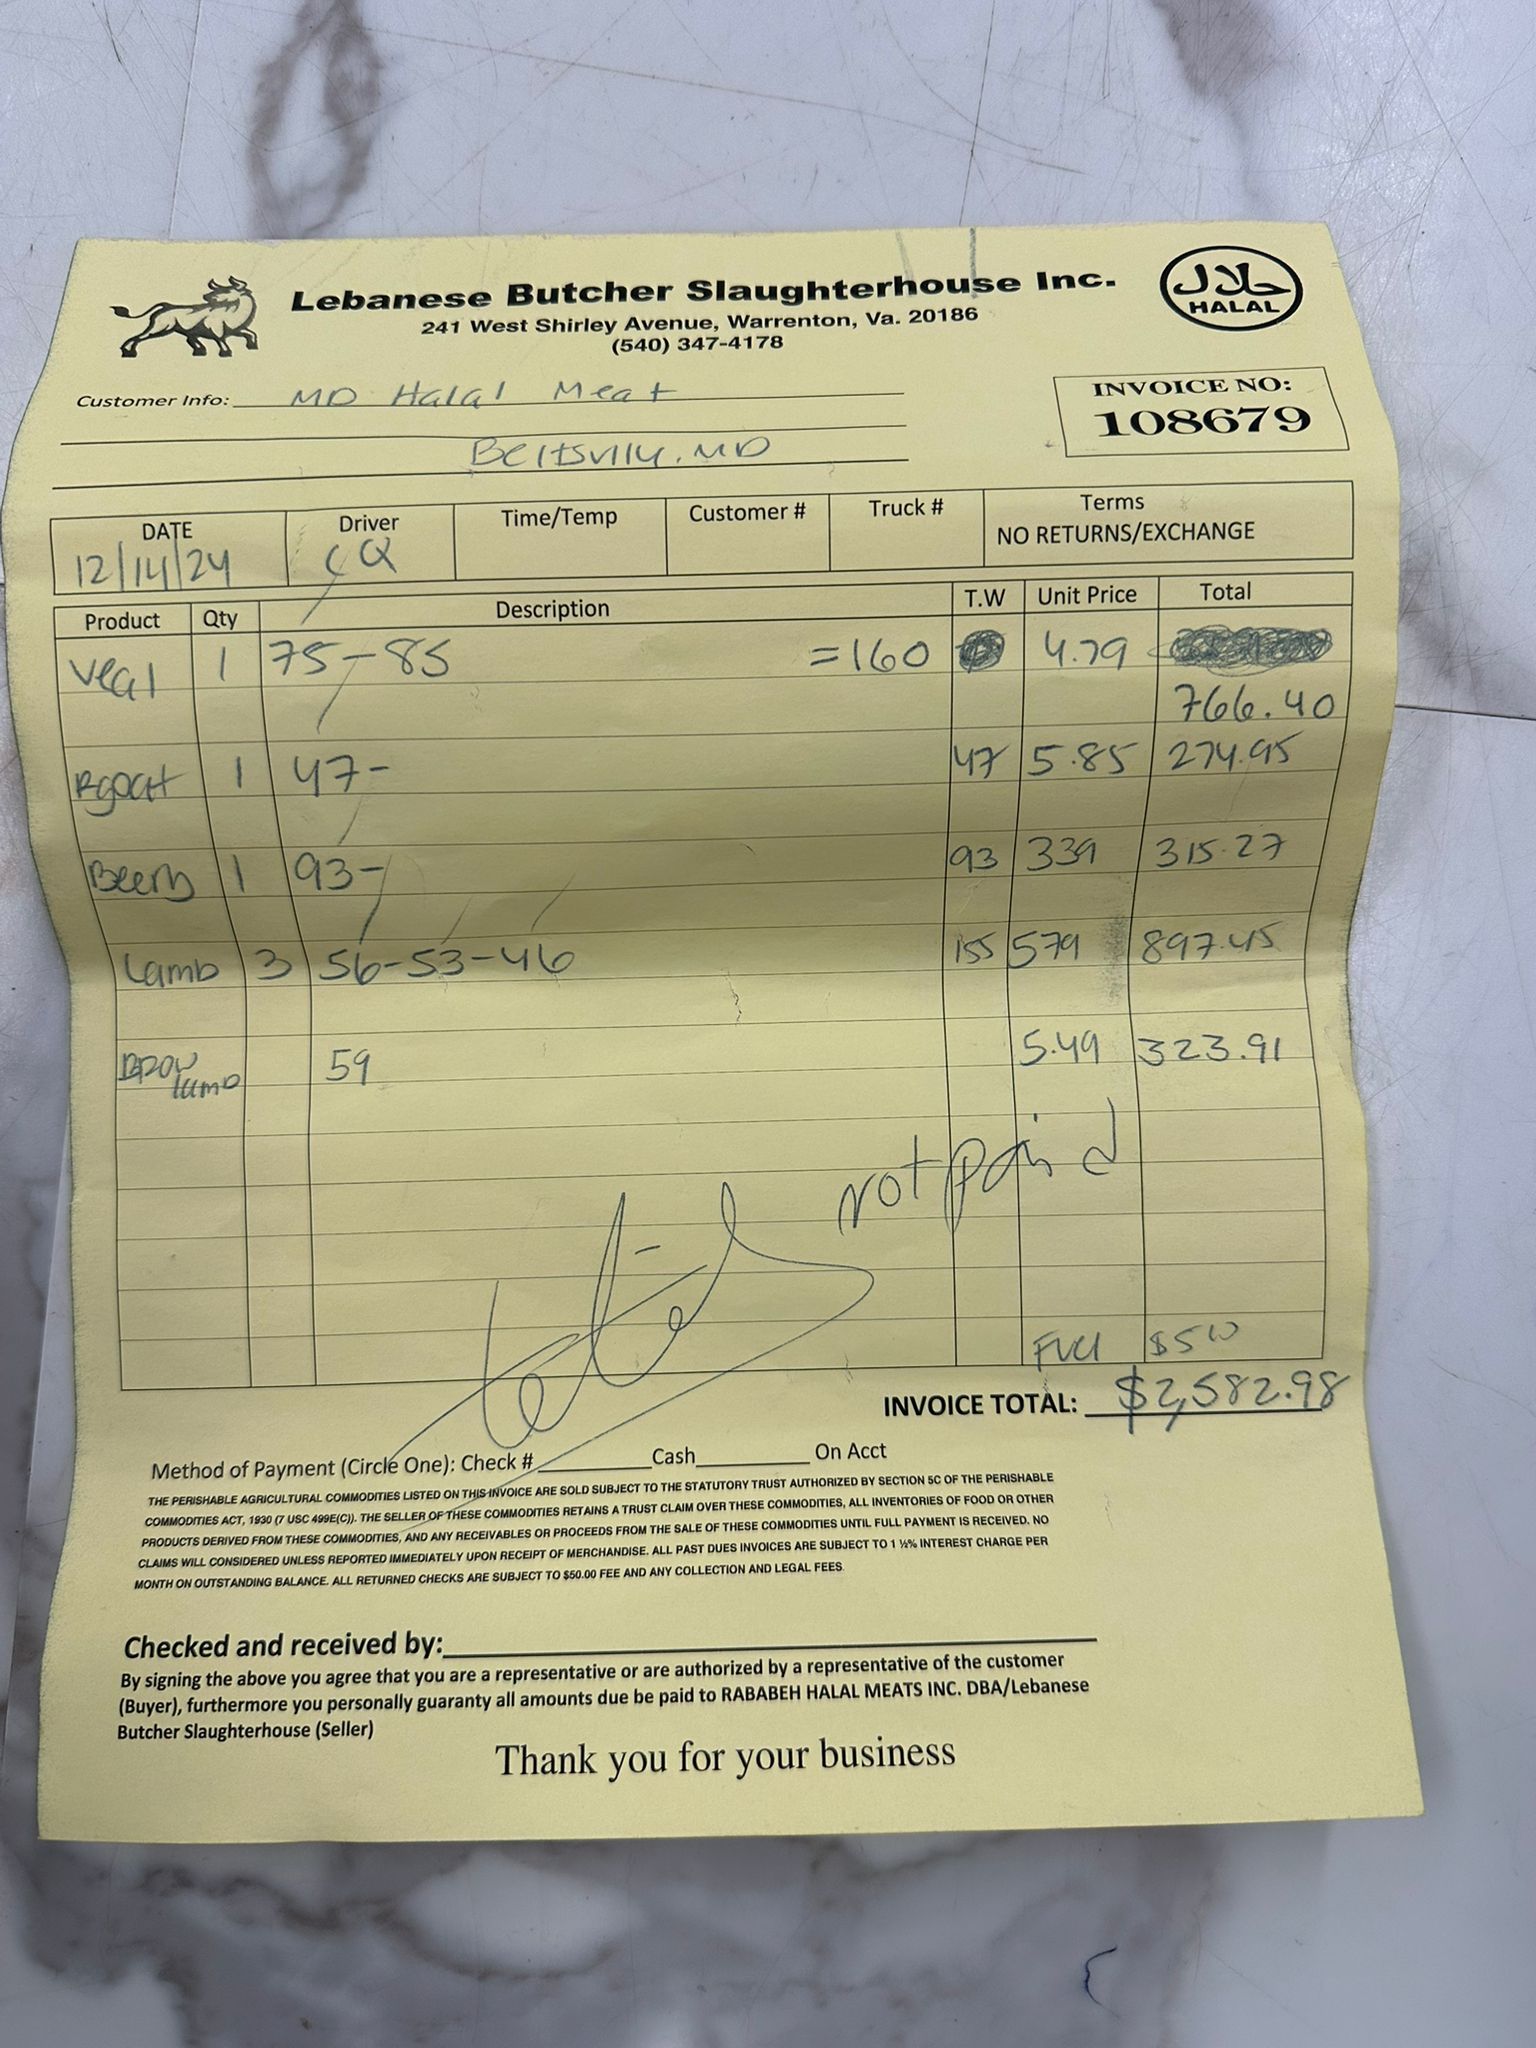 Lebanese Butcher Slaughterhouse Inc.
241 West Shirley Avenue, Warrenton, Va. 20186
(540) 347-4178
حلال
HALAL
Customer Info: MD Halal Meat
INVOICE NO:
108679
MD
DATE Driver Time/Temp Customer # Truck # Terms
12/14/24 CQ NO RETURNS/EXCHANGE
Product Qty Description T.W Unit Price Total
Veal 1 75-85 =160 4.79
766.40
Rgoat 1 47- 47 5.85 274.95
1 93- 93 339 315.27
Lamb 3 56-53-46 155 579 897.45
lamb 59 5.49 323.91
not paid
$5
INVOICE TOTAL: $2,582.98
Method of Payment (Circle One): Check # Cash On Acct
THE PERISHABLE AGRICULTURAL COMMODITIES LISTED ON THIS INVOICE ARE SOLD SUBJECT TO THE STATUTORY TRUST AUTHORIZED BY SECTION 5C OF THE PERISHABLE
COMMODITIES ACT, 1930 (7 USC 499E(C)). THE SELLER OF THESE COMMODITIES RETAINS A TRUST CLAIM OVER THESE COMMODITIES, ALL INVENTORIES OF FOOD OR OTHER
PRODUCTS DERIVED FROM THESE COMMODITIES, AND ANY RECEIVABLES OR PROCEEDS FROM THE SALE OF THESE COMMODITIES UNTIL FULL PAYMENT IS RECEIVED. NO
CLAIMS WILL CONSIDERED UNLESS REPORTED IMMEDIATELY UPON RECEIPT OF MERCHANDISE. ALL PAST DUES INVOICES ARE SUBJECT TO 1 ½% INTEREST CHARGE PER
MONTH ON OUTSTANDING BALANCE. ALL RETURNED CHECKS ARE SUBJECT TO $50.00 FEE AND ANY COLLECTION AND LEGAL FEES
Checked and received by:
By signing the above you agree that you are a representative or are authorized by a representative of the customer
(Buyer), furthermore you personally guaranty all amounts due be paid to RABABEH HALAL MEATS INC. DBA/Lebanese
Butcher Slaughterhouse (Seller)
Thank you for your business